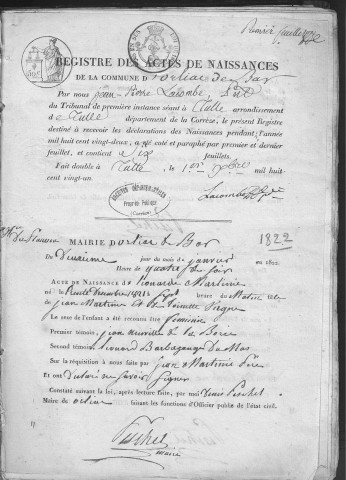 Premier feuillet
REGISTRE DES ACTES DE NAISSANCES
DE LA COMMUNE D'orliac de Bar
Par nous jean Pierre Lacombe, Pdt
du Tribunal de première instance séant à Tulle arrondissement
de Tulle département de la Corrèze, le présent Registre
destiné à recevoir les déclarations des Naissances pendant l'année
mil huit cent vingt-deux, a été coté et paraphé par premier et dernier
feuillet, et contient six feuillets.
Fait double à Tulle, le 1er mil huit
cent vingt-un.
Lacombe
ARCHIVES DÉPARTEMENTALES
Propriété Publique
(Corrèze)
1822
MAIRIE D'orliac de Bar
Du Deuxième jour du mois de janvier an 1822
Heure de quatre du soir
ACTE DE NAISSANCE de Léonarde Martinie
né le trente décembre 1821 à sept heures du Matin fille de
jean Martinie et de Vergne
Le sexe de l'enfant a été reconnu être féminin
Premier témoin, jean
Second témoin, Léonard du Mas
Sur la réquisition à nous faite par jean Martinie Père
Et ont déclaré ne savoir signer
Constaté suivant la loi, après lecture faite, par moi
Maire d'orliac faisant les fonctions d'Officier public de l'état civil.
maire